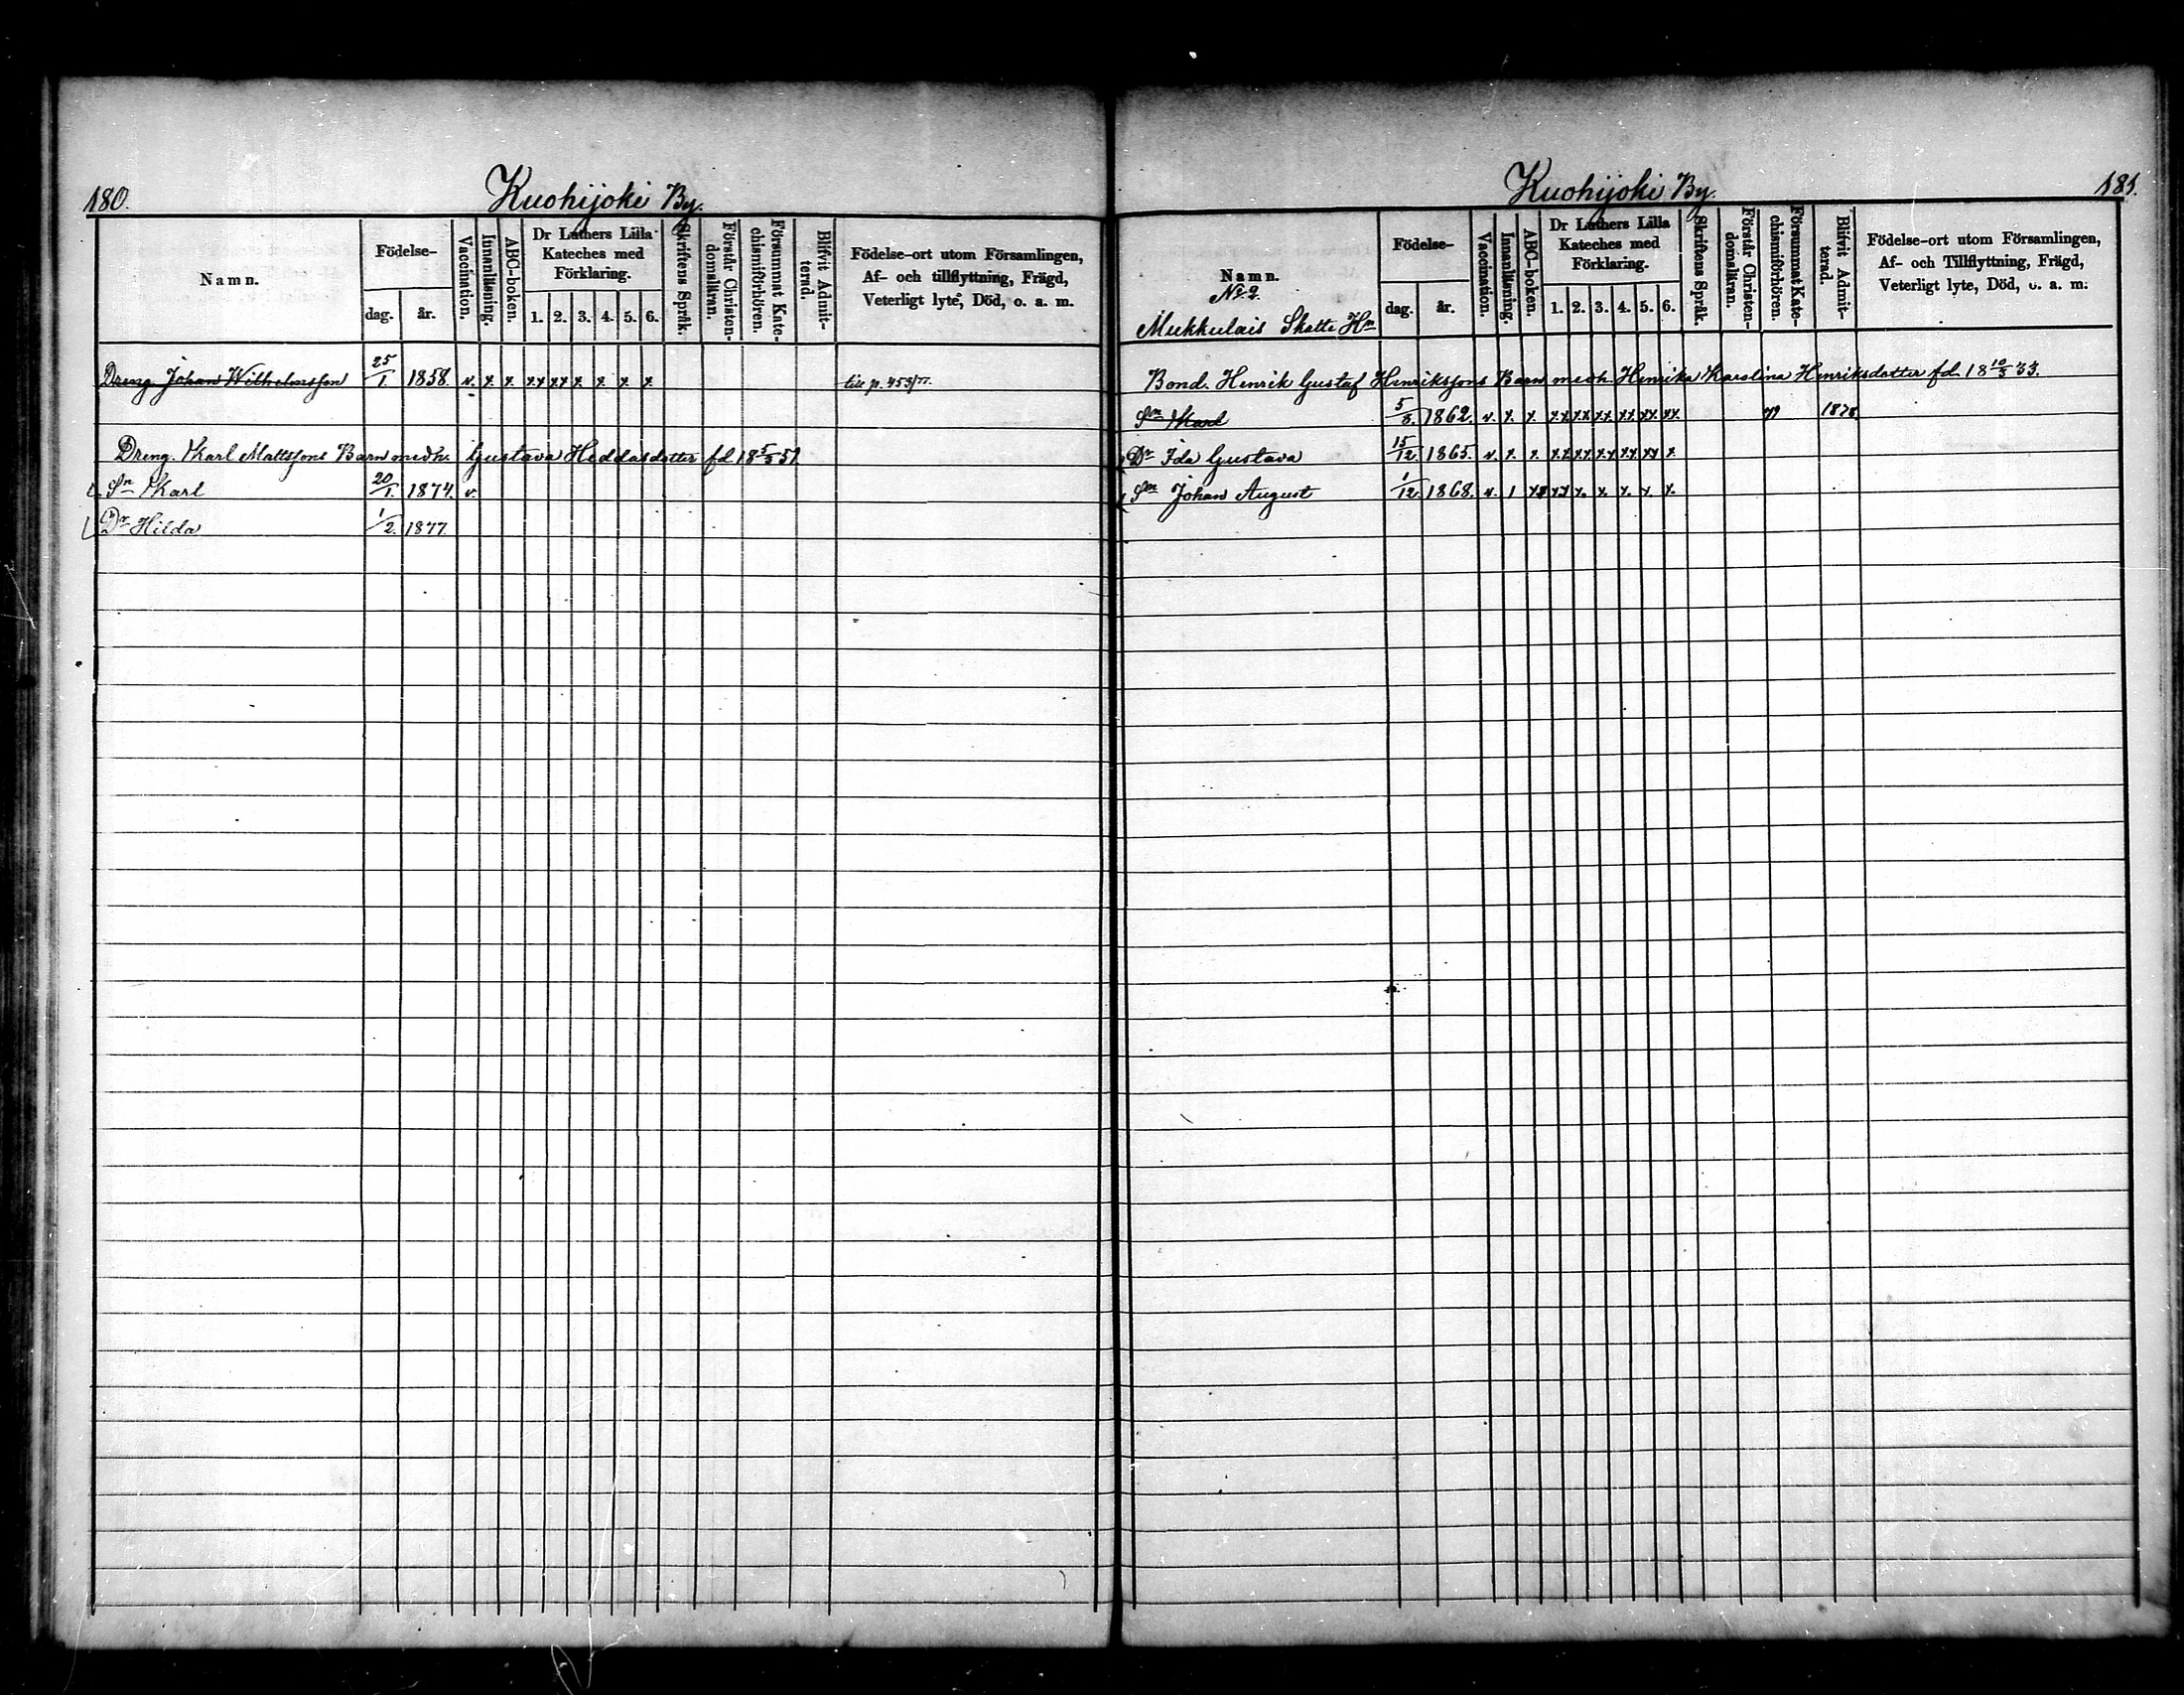 180.
Kuohijoki By.
Namn.
Födelse-
dag.
år.
Vaccination.
Innanläsning.
ABC-boken.
Dr Luthers Lilla
Kateches med
Förklaring.
1. 2. 3. 4. 5. 6.
Skriftens Språk.
Förstår Christen-
domsläran.
Försummat Kate-
chismiförhören.
Blifvit Admit-
terad.
Födelse-ort utom Församlingen,
Af- och tillflyttning, Frägd,
Veterligt lyte, Död, o. a. m.
Dreng. Johan Wilhelmsson 25/1 1858. v. x x xx xx x x x x till p. 453/77.
Dreng. Karl Mattssons Barn med h. Gustava Heddasdotter fd 18 5/5 51.
Sn Karl 20/1. 1874. v.
Dr Hilda 1/2. 1877.
181.
Kuohijoki By.
Namn.
No 2.
Mukkulais Skatte Hn
Födelse-
dag.
år.
Vaccination.
Innanläsning.
ABC-boken.
Dr Luthers Lilla
Kateches med
Förklaring.
1. 2. 3. 4. 5. 6.
Skriftens Språk.
Förstår Christen-
domsläran.
Försummat Kate-
chismiförhören.
Blifvit Admit-
terad.
Födelse-ort utom Församlingen,
Af- och Tillflyttning, Frägd,
Veterligt lyte, Död, o. a. m.
Bond. Henrik Gustaf Henrikssons Barn med h. Henrika Karolina Henriksdotter fd. 18 10/3 33.
Sn Karl 1862. v. x. x. xx xx xx xx xx xx 1878
Dr Ida Gustava 15/12. 1865. v. x. x. xx xx xx xx xx x.
Sn Johan August 1/12. 1868. v. 1 xx x. x. x. x. x.